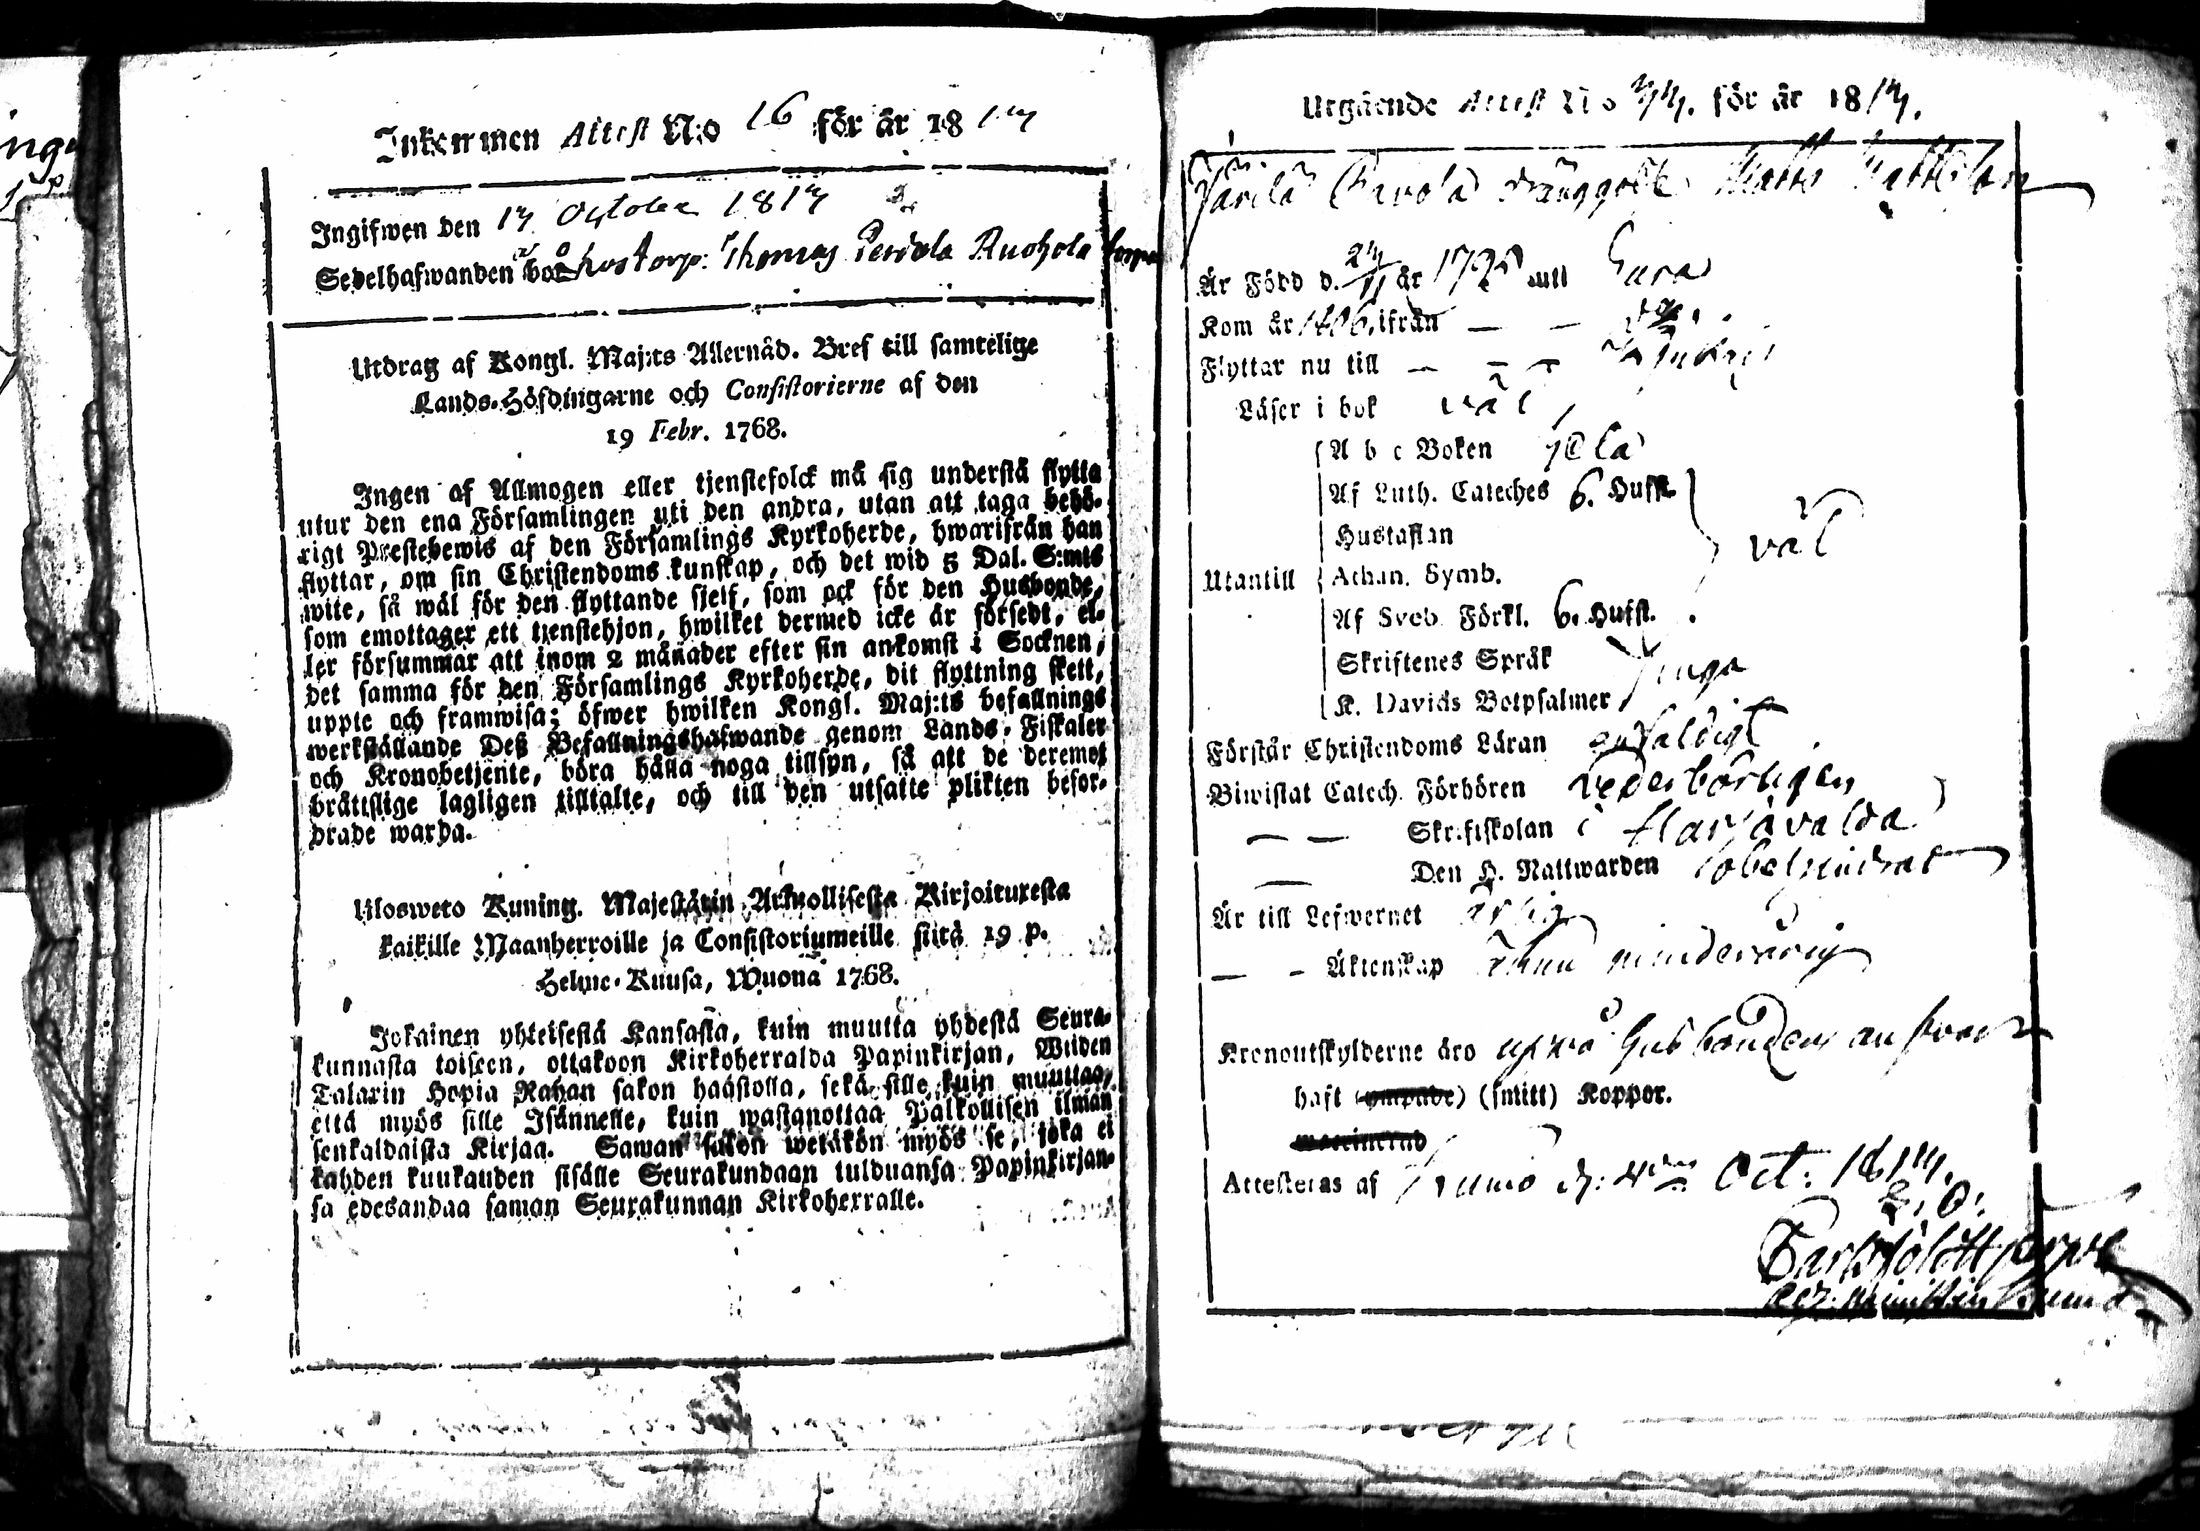 Inkommen Attest N:o 16 för år 1817
Ingifwen den 17 October 1817
Sedelhafwanden Thomas Ruohola
Utdrag af Kongl. Maj:ts Allernåd. Bref till samtelige
Lands-Höfdingarne och Consistorierne af den
19 Febr. 1768.
Ingen af Allmogen eller tjenstefolck må sig understå flytta
utur den ena Församlingen uti den andra, utan att taga behö-
rigt Prestebewis af den Församlings Kyrkoherde, hwarifrån han
flyttar, om sin Christendoms kunskap, och det wid 5 Dal. S:mts
wite, så wäl för den flyttande sjelf, som ock för den Husbonde,
som emottager ett tjenstehjon, hwilket dermed icke är försedt, el-
ler försummar att inom 2 månader efter sin ankomst i Socknen,
det samma för den Församlings Kyrkoherde, dit flyttning skett,
uppte och framwisa; öfwer hwilken Kongl. Maj:ts befallnings
werkställande Deß Befallningshafwande genom Lands-Fiskaler
och Kronobetjente, böra hålla noga tillsyn, så att de deremot
bråttslige lagligen tilltalte, och till den utsatte plikten befor-
drade warda.
Ulosweto Kuning. Majestätin Armollisesta Kirjoituxesta
kaikille Maanherroille ja Consistoriumeille siitä 19 p.
Helme-Kuusa, Wuona 1768.
Jokainen yhteisestä Kansasta, kuin muutta yhdestä Seura-
kunnasta toiseen, ottakoon Kirkoherralda Papinkirjan, Wiiden
Talarin Hopia Rahan sakon haastolla, sekä sille kuin muuttaa,
että myös sille Isännelle, kuin wastanottaa Palkollisen ilman
senkaldaista Kirjaa. Saman sakon wetäkön myös se, joka ei
kahden kuukauden sisälle Seurakundaan tulduansa Papinkirjan-
sa edesandaa saman Seurakunnan Kirkoherralle.
Utgående Attest N:o för år 1817.
dränggosse Matts Mattsson
Är Född d. 24/11 år uti Eura
Kom år 1806 ifrån
Flyttar nu till
Läser i bok väl
A b c Boken hela
Af Luth. Cateches 6. Hufst.
Hustaflan väl
Utantill Athan. Symb.
Af Sveb. Förkl. 6. Hufst.
Skriftenes Språk
K. Davids Botpsalmer inga
Förstår Christendoms Läran enfaldigt
Biwistat Catech. Förhören vederbörligen
Skriftskolan i Harjavalda
Den H. Nattwarden obehindrat
Är till Lefwernet ärlig
Äktenskap ännu minderårig
Kronoutskylderne äro uppå husbondens answar
haft (ympade) (smitt) Koppor.
Attesteras af Kumo d: 4de Oct. 1817.